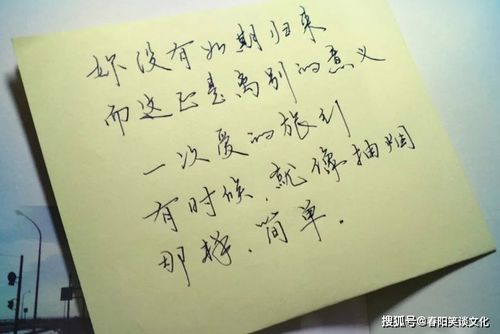 妳没有如期归来
而这正是离别的意义
一次爱的旅行
有时候，就像抽烟
那样、简单.
搜狐号@春阳笑谈文化